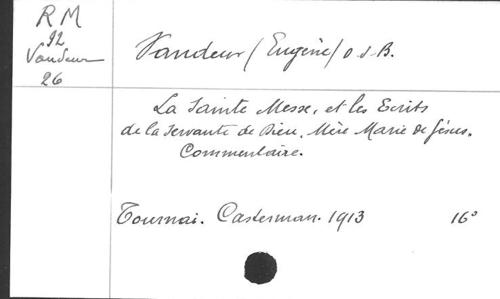 RM
92
Vandeur
26
Vandeur (Eugène) O.S.B.
La Sainte Messe, et les Ecrits
de la Servante de Dieu, Mère Marie de Jésus.
Commentaire.
Tournai. Casterman. 1913 16°